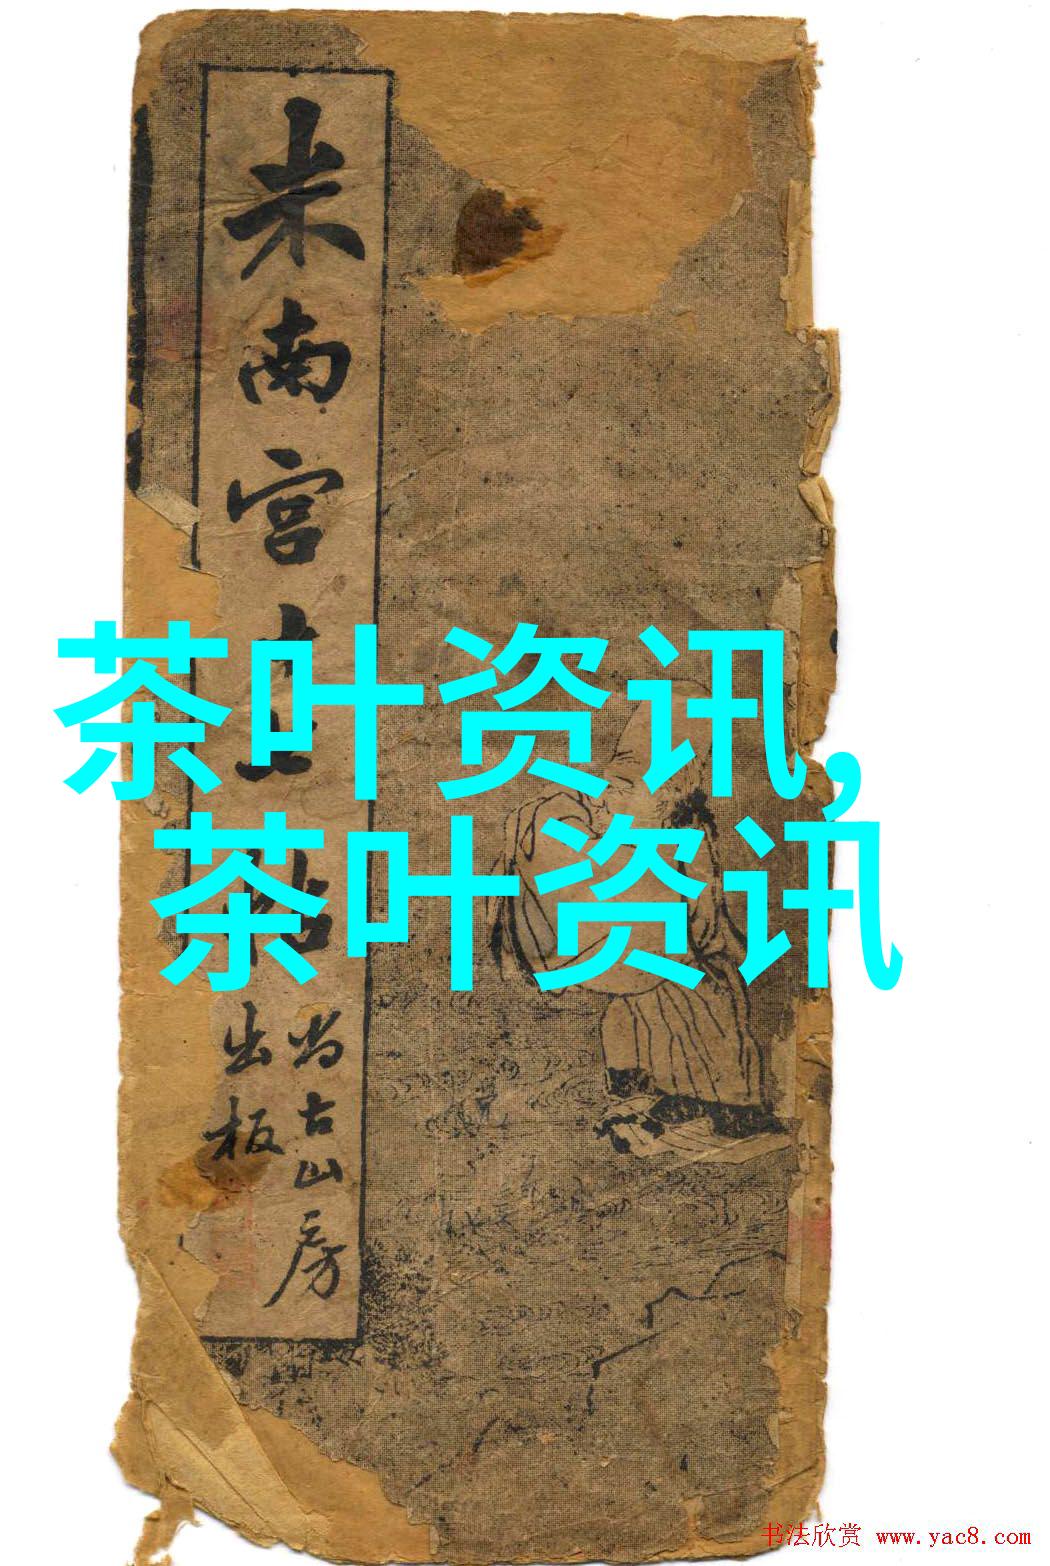 米南宫
茶叶资讯,
茶叶资讯
尚古山房
出板
书法欣赏 www.yac8.com